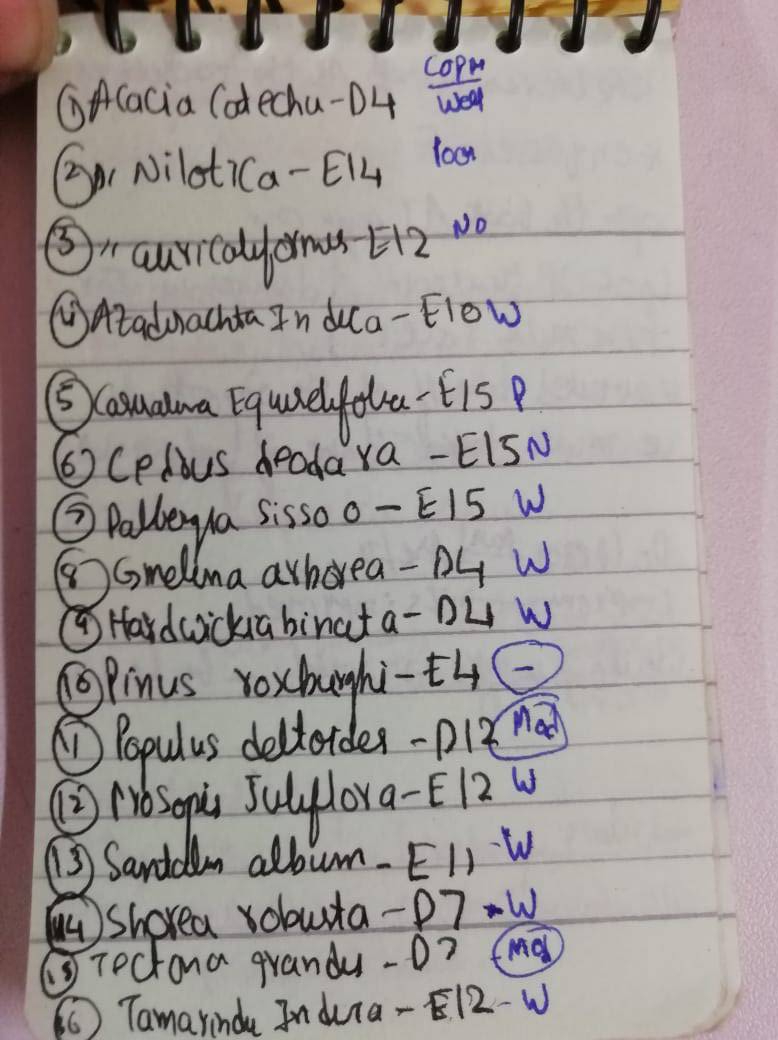 COPM
① Acacia Catechu - D4 Well
② " Nilotica - E14 Poor
③ " auricoliformis - E12 NO
④ Azadirachta Indica - E10 W
⑤ Casualina Equisetifolia - E15 P
⑥ Cedrus deodara - E15 N
⑦ Dalbergia sissoo - E15 W
⑧ Gmelina arborea - D4 W
⑨ Hardwickia binata - D4 W
⑩ Pinus roxburghi - E4 -
⑪ Populus deltoides - D12 Mod
⑫ Prosopis Juliflora - E12 W
⑬ Santalm album - E11 - W
⑭ Shorea robusta - D7 - W
⑮ Tectona grandis - D7 Mod
⑯ Tamarindu Indica - E12 - W